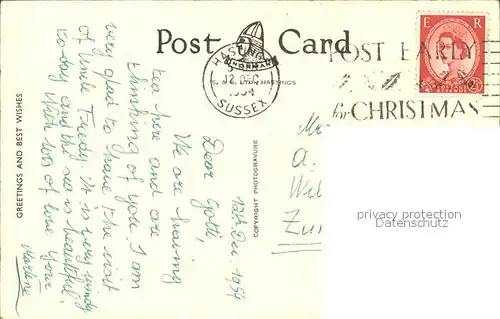 Post Card
HASTINGS
12 DEC
1954
SUSSEX
NORMAN
HASTINGS
POST EARLY
for CHRISTMAS
E R
2½
GREETINGS AND BEST WISHES
COPYRIGHT PHOTOGRAVURE
12th Dec. 1954
Dear Gotti,
We are having
tea here and are
thinking of you. I am
very glad to have the visit
of uncle Freddy. It is very windy
to-day and the sea is beautiful.
With lots of love Your
Marlene
A.
privacy protection
www.